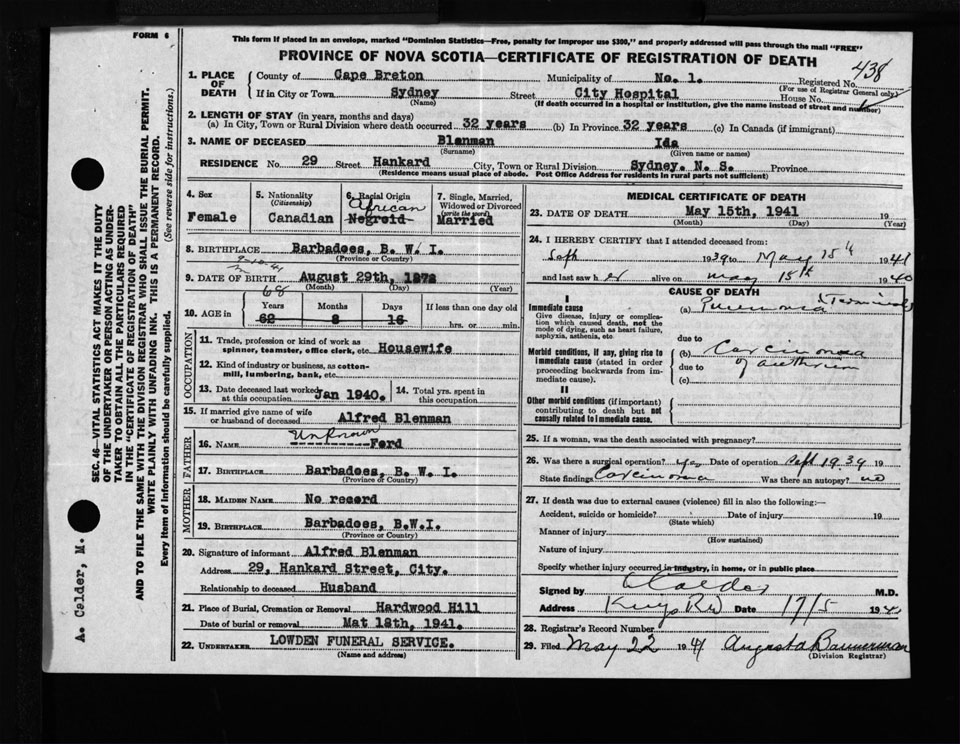 FORM 6
This form if placed in an envelope, marked "Dominion Statistics—Free, penalty for improper use $300," and properly addressed will pass through the mail "FREE"
PROVINCE OF NOVA SCOTIA—CERTIFICATE OF REGISTRATION OF DEATH
438
1. PLACE OF DEATH
County of Cape Breton Municipality of No. 1. Registered No.
(For use of Registrar General only)
If in City or Town Sydney Street City Hospital House No.
(Name) (If death occurred in a hospital or institution, give the name instead of street and number)
2. LENGTH OF STAY (in years, months and days)
(a) In City, Town or Rural Division where death occurred 32 years (b) In Province 32 years (c) In Canada (if immigrant)
3. NAME OF DECEASED Blenman Ida
(Surname) (Given name or names)
RESIDENCE No. 29 Street Hankard City, Town or Rural Division Sydney. N. S. Province
(Residence means usual place of abode. Post Office Address for residents in rural parts not sufficient)
4. Sex
Female
5. Nationality
(Citizenship)
Canadian
6. Racial Origin
African
Negroid
7. Single, Married, Widowed or Divorced
(write the word)
Married
8. BIRTHPLACE Barbadoes, B. W. I.
(Province or Country)
9. DATE OF BIRTH August 29th, 1872
(Month) (Day) (Year)
10. AGE in
68
Years Months Days If less than one day old
62 8 16 hrs. or min.
OCCUPATION
11. Trade, profession or kind of work as spinner, teamster, office clerk, etc. Housewife
12. Kind of industry or business, as cotton-mill, lumbering, bank, etc.
13. Date deceased last worked at this occupation Jan 1940. 14. Total yrs. spent in this occupation
15. If married give name of wife or husband of deceased Alfred Blenman
FATHER
16. NAME Unknown Ford
17. BIRTHPLACE Barbadoes, B. W. I.
(Province or Country)
MOTHER
18. MAIDEN NAME No record
19. BIRTHPLACE Barbadoes, B.W.I.
(Province or Country)
20. Signature of informant Alfred Blenman
Address 29, Hankard Street, City.
Relationship to deceased Husband
21. Place of Burial, Cremation or Removal Hardwood Hill
Date of burial or removal Mat 18th, 1941.
22. UNDERTAKER LOWDEN FUNERAL SERVICE.
(Name and address)
MEDICAL CERTIFICATE OF DEATH
23. DATE OF DEATH May 15th, 1941 19
(Month) (Day) (Year)
24. I HEREBY CERTIFY that I attended deceased from:
Sept 1939 to May 15th 1941
and last saw her alive on may 15th 1940
CAUSE OF DEATH
I
Immediate cause
Give disease, injury or complication which caused death, not the mode of dying, such as heart failure, asphyxia, asthenia, etc.
(a) Pneumonia (Terminal)
due to
Morbid conditions, if any, giving rise to immediate cause (stated in order proceeding backwards from immediate cause).
(b) Carcinoma
due to of
(c)
II
Other morbid conditions (if important) contributing to death but not causally related to immediate cause.
25. If a woman, was the death associated with pregnancy?
26. Was there a surgical operation? yes Date of operation Sept 1939 19
State findings Carcinoma Was there an autopsy? no
27. If death was due to external causes (violence) fill in also the following:—
Accident, suicide or homicide? Date of injury 19
(State which)
Manner of injury
(How sustained)
Nature of injury
Specify whether injury occurred in industry, in home, or in public place
Signed by A Calder M.D.
Address Kings Rd Date 17/5 1941
28. Registrar's Record Number
29. Filed May 22 1941 Augusta Bannerman
(Division Registrar)
SEC. 46—VITAL STATISTICS ACT MAKES IT THE DUTY
OF THE UNDERTAKER OR PERSON ACTING AS UNDER-
TAKER TO OBTAIN ALL THE PARTICULARS REQUIRED
IN THE "CERTIFICATE OF REGISTRATION OF DEATH"
AND TO FILE THE SAME WITH THE DIVISION REGISTRAR WHO SHALL ISSUE THE BURIAL PERMIT.
WRITE PLAINLY WITH UNFADING INK. THIS IS A PERMANENT RECORD.
Every item of information should be carefully supplied. (See reverse side for instructions.)
A. Calder, M.